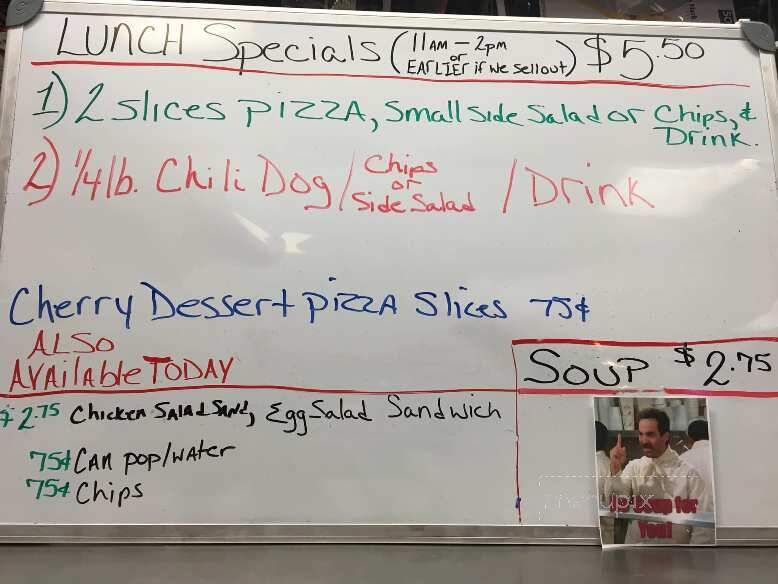 LUNCH Specials (11AM – 2pm or EARLIER if we sellout) $5.50
1) 2 slices PIZZA, Small Side Salad or Chips, & Drink.
2) 1/4 lb. Chili Dog / Chips or Side Salad / Drink
Cherry Dessert PIZZA Slices 75¢
ALSO
AVAilable TODAY
SOUP $2.75
$2.75 Chicken SALAD SAND, Egg Salad Sandwich
75¢ CAN pop/water
75¢ Chips
for
You!